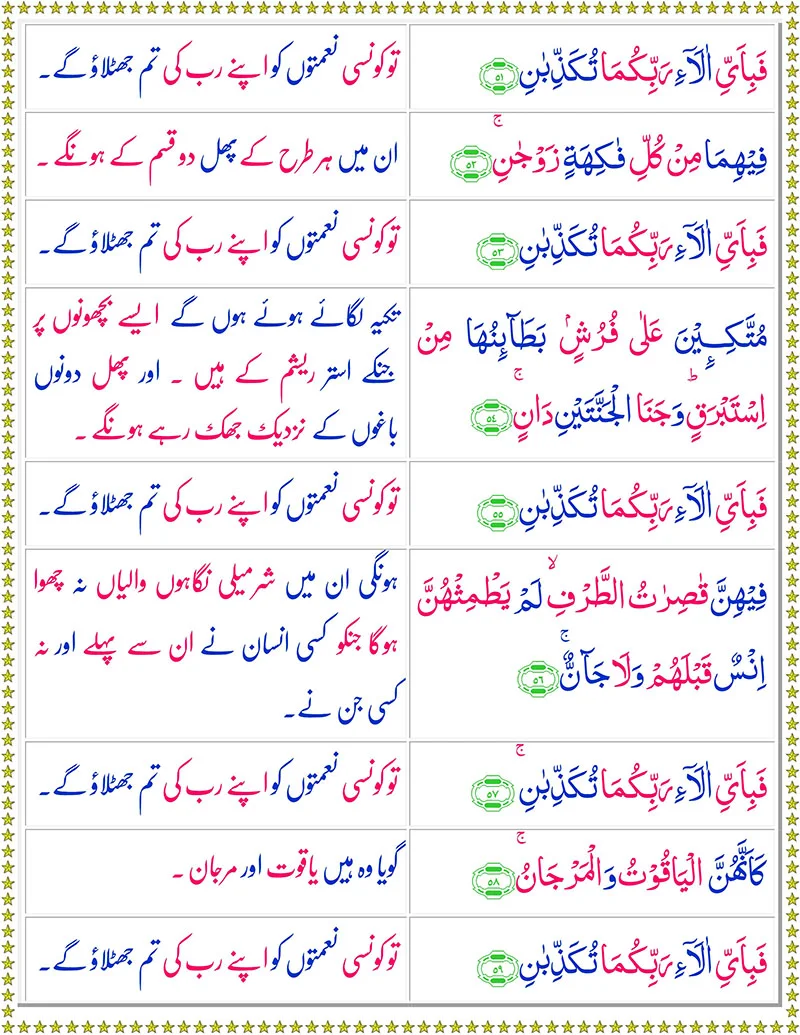 فَبِاَيِّ اٰلَآءِ رَبِّكُمَا تُكَذِّبٰنِ ﴿٥١﴾
تو کونسی نعمتوں کو اپنے رب کی تم جھٹلاؤ گے۔
فِيْهِمَا مِنْ كُلِّ فَاكِهَةٍ زَوْجٰنِ ۚ ﴿٥٢﴾
ان میں ہر طرح کے پھل دو قسم کے ہونگے ۔
فَبِاَيِّ اٰلَآءِ رَبِّكُمَا تُكَذِّبٰنِ ﴿٥٣﴾
تو کونسی نعمتوں کو اپنے رب کی تم جھٹلاؤ گے۔
مُتَّكِـِٕيْنَ عَلٰى فُرُشٍۭ بَطَآىِٕنُهَا مِنْ
اِسْتَبْرَقٍ ؕ وَجَنَا الْجَنَّتَيْنِ دَانٍ ۚ ﴿٥٤﴾
تکیہ لگائے ہوئے ہوں گے ایسے بچھونوں پر
جنکے استر ریشم کے ہیں ۔ اور پھل دونوں
باغوں کے نزدیک جھک رہے ہونگے ۔
فَبِاَيِّ اٰلَآءِ رَبِّكُمَا تُكَذِّبٰنِ ﴿٥٥﴾
تو کونسی نعمتوں کو اپنے رب کی تم جھٹلاؤ گے۔
فِيْهِنَّ قٰصِرٰتُ الطَّرْفِ ۙ لَمْ يَطْمِثْهُنَّ
اِنْسٌ قَبْلَهُمْ وَلَا جَآنٌّ ۚ ﴿٥٦﴾
ہونگی ان میں شرمیلی نگاہوں والیاں نہ چھوا
ہوگا جنکو کسی انسان نے ان سے پہلے اور نہ
کسی جن نے۔
فَبِاَيِّ اٰلَآءِ رَبِّكُمَا تُكَذِّبٰنِ ۚ ﴿٥٧﴾
تو کونسی نعمتوں کو اپنے رب کی تم جھٹلاؤ گے۔
كَاَنَّهُنَّ الْيَاقُوْتُ وَالْمَرْجَانُ ۚ ﴿٥٨﴾
گویا وہ ہیں یاقوت اور مرجان ۔
فَبِاَيِّ اٰلَآءِ رَبِّكُمَا تُكَذِّبٰنِ ﴿٥٩﴾
تو کونسی نعمتوں کو اپنے رب کی تم جھٹلاؤ گے۔